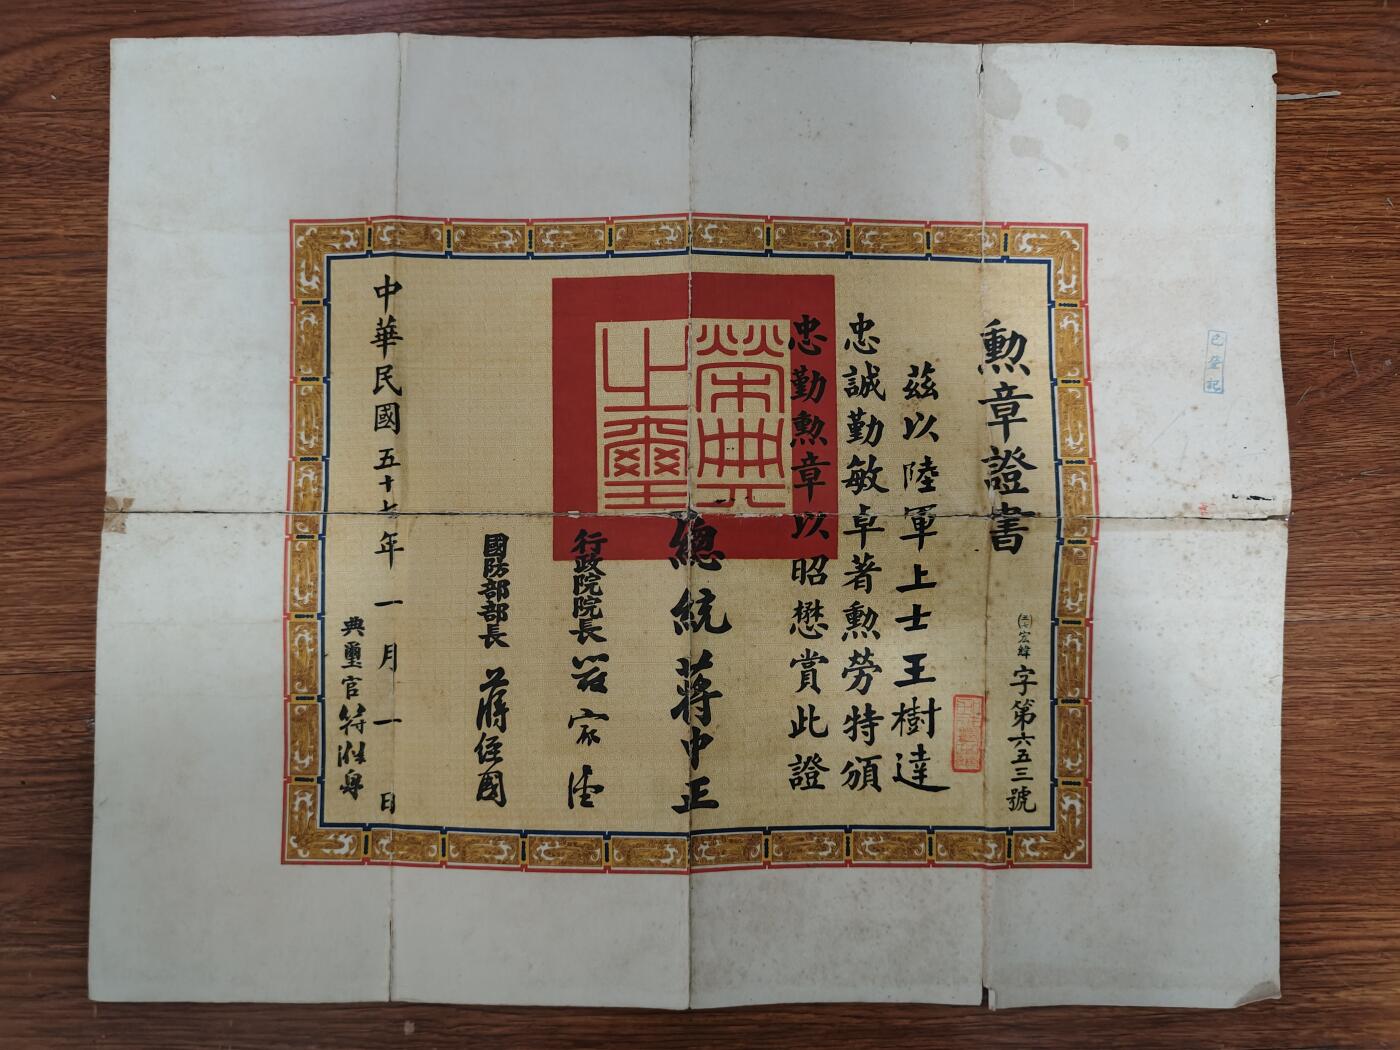 勲章證書
宏緯字第六五三號
茲以陸軍上士王樹達
忠誠勤敏卓著勲勞特頒
忠勤勲章以昭懋賞此證
榮典
之璽
總統蔣中正
行政院院長嚴家淦
國防部部長蔣經國
中華民國五十七年一月一日
典璽官
已登記